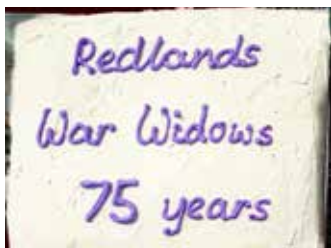 Redlands
War Widows
75 years